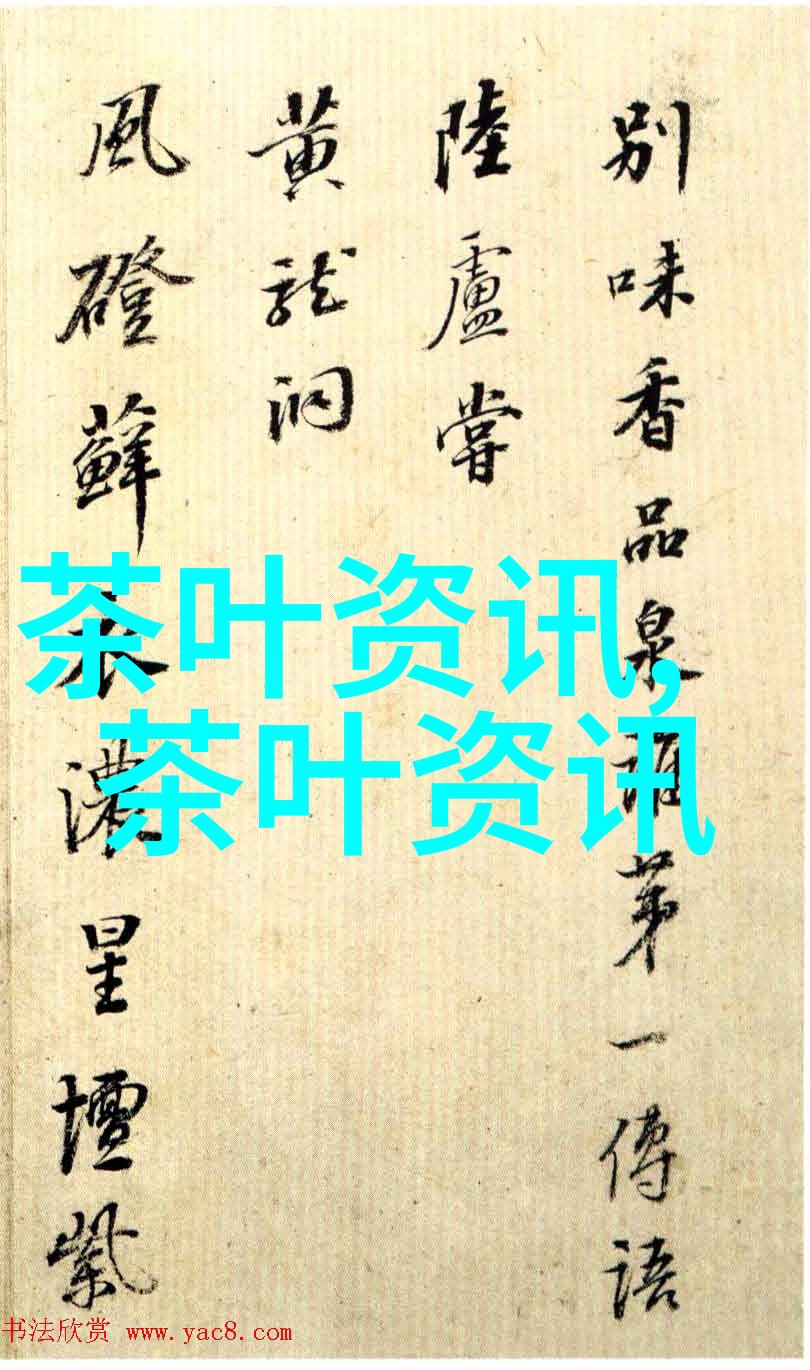 别味香品泉誰苐一傳語
陸盧嘗
黄龍洞
風磴蘚衣濃星壇紫
茶叶资讯,
茶叶资讯
书法欣赏 www.yac8.com